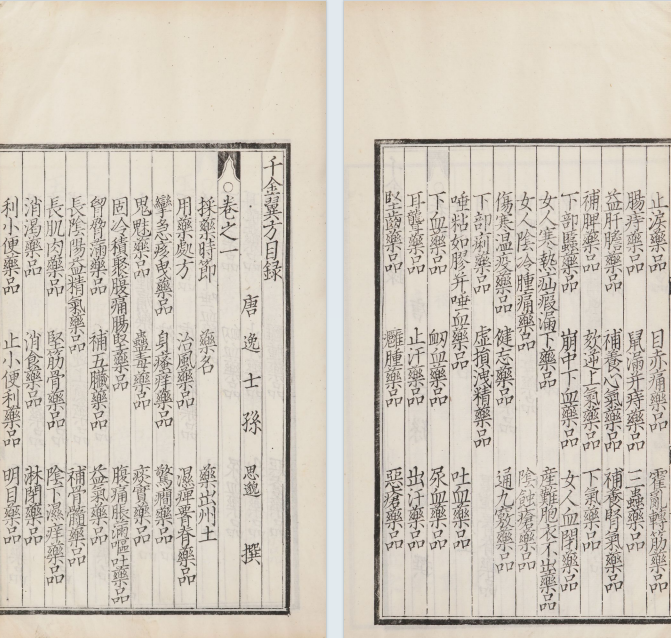 千金翼方目錄
唐逸士孫思邈撰
卷之一
採藥時節 藥名 藥出州土
用藥處方 治風藥品 濕痺腰脊藥品
攣急疼曳藥品 身瘙痒藥品 驚癇藥品
鬼魅藥品 蠱毒藥品 痰實藥品
固冷積聚腹痛腸堅藥品 腹痛脹滿嘔吐藥品
胷脅滿藥品 補五臟藥品 益氣藥品
長陰陽益精氣藥品 補骨髓藥品
長肌肉藥品 堅筋骨藥品 陰下濕痒藥品
消渴藥品 消食藥品 淋閉藥品
利小便藥品 止小便利藥品 明目藥品
止淚藥品 目赤痛藥品 霍亂轉筋藥品
腸痔藥品 鼠漏并痔藥品 三蟲藥品
益肝膽藥品 補養心氣藥品 補養腎氣藥品
補脾藥品 欬逆上氣藥品 下氣藥品
下部䘌藥品 崩中下血藥品 女人血閉藥品
女人寒熱疝瘕漏下藥品 產難胞衣不出藥品
女人陰冷腫痛藥品 陰蝕瘡藥品
傷寒溫疫藥品 健志藥品 通九竅藥品
下部痢藥品 虛損洩精藥品
唾粘如膠并唾血藥品 吐血藥品
下血藥品 衂血藥品 尿血藥品
耳聾藥品 止汗藥品 出汗藥品
堅齒藥品 癰腫藥品 惡瘡藥品